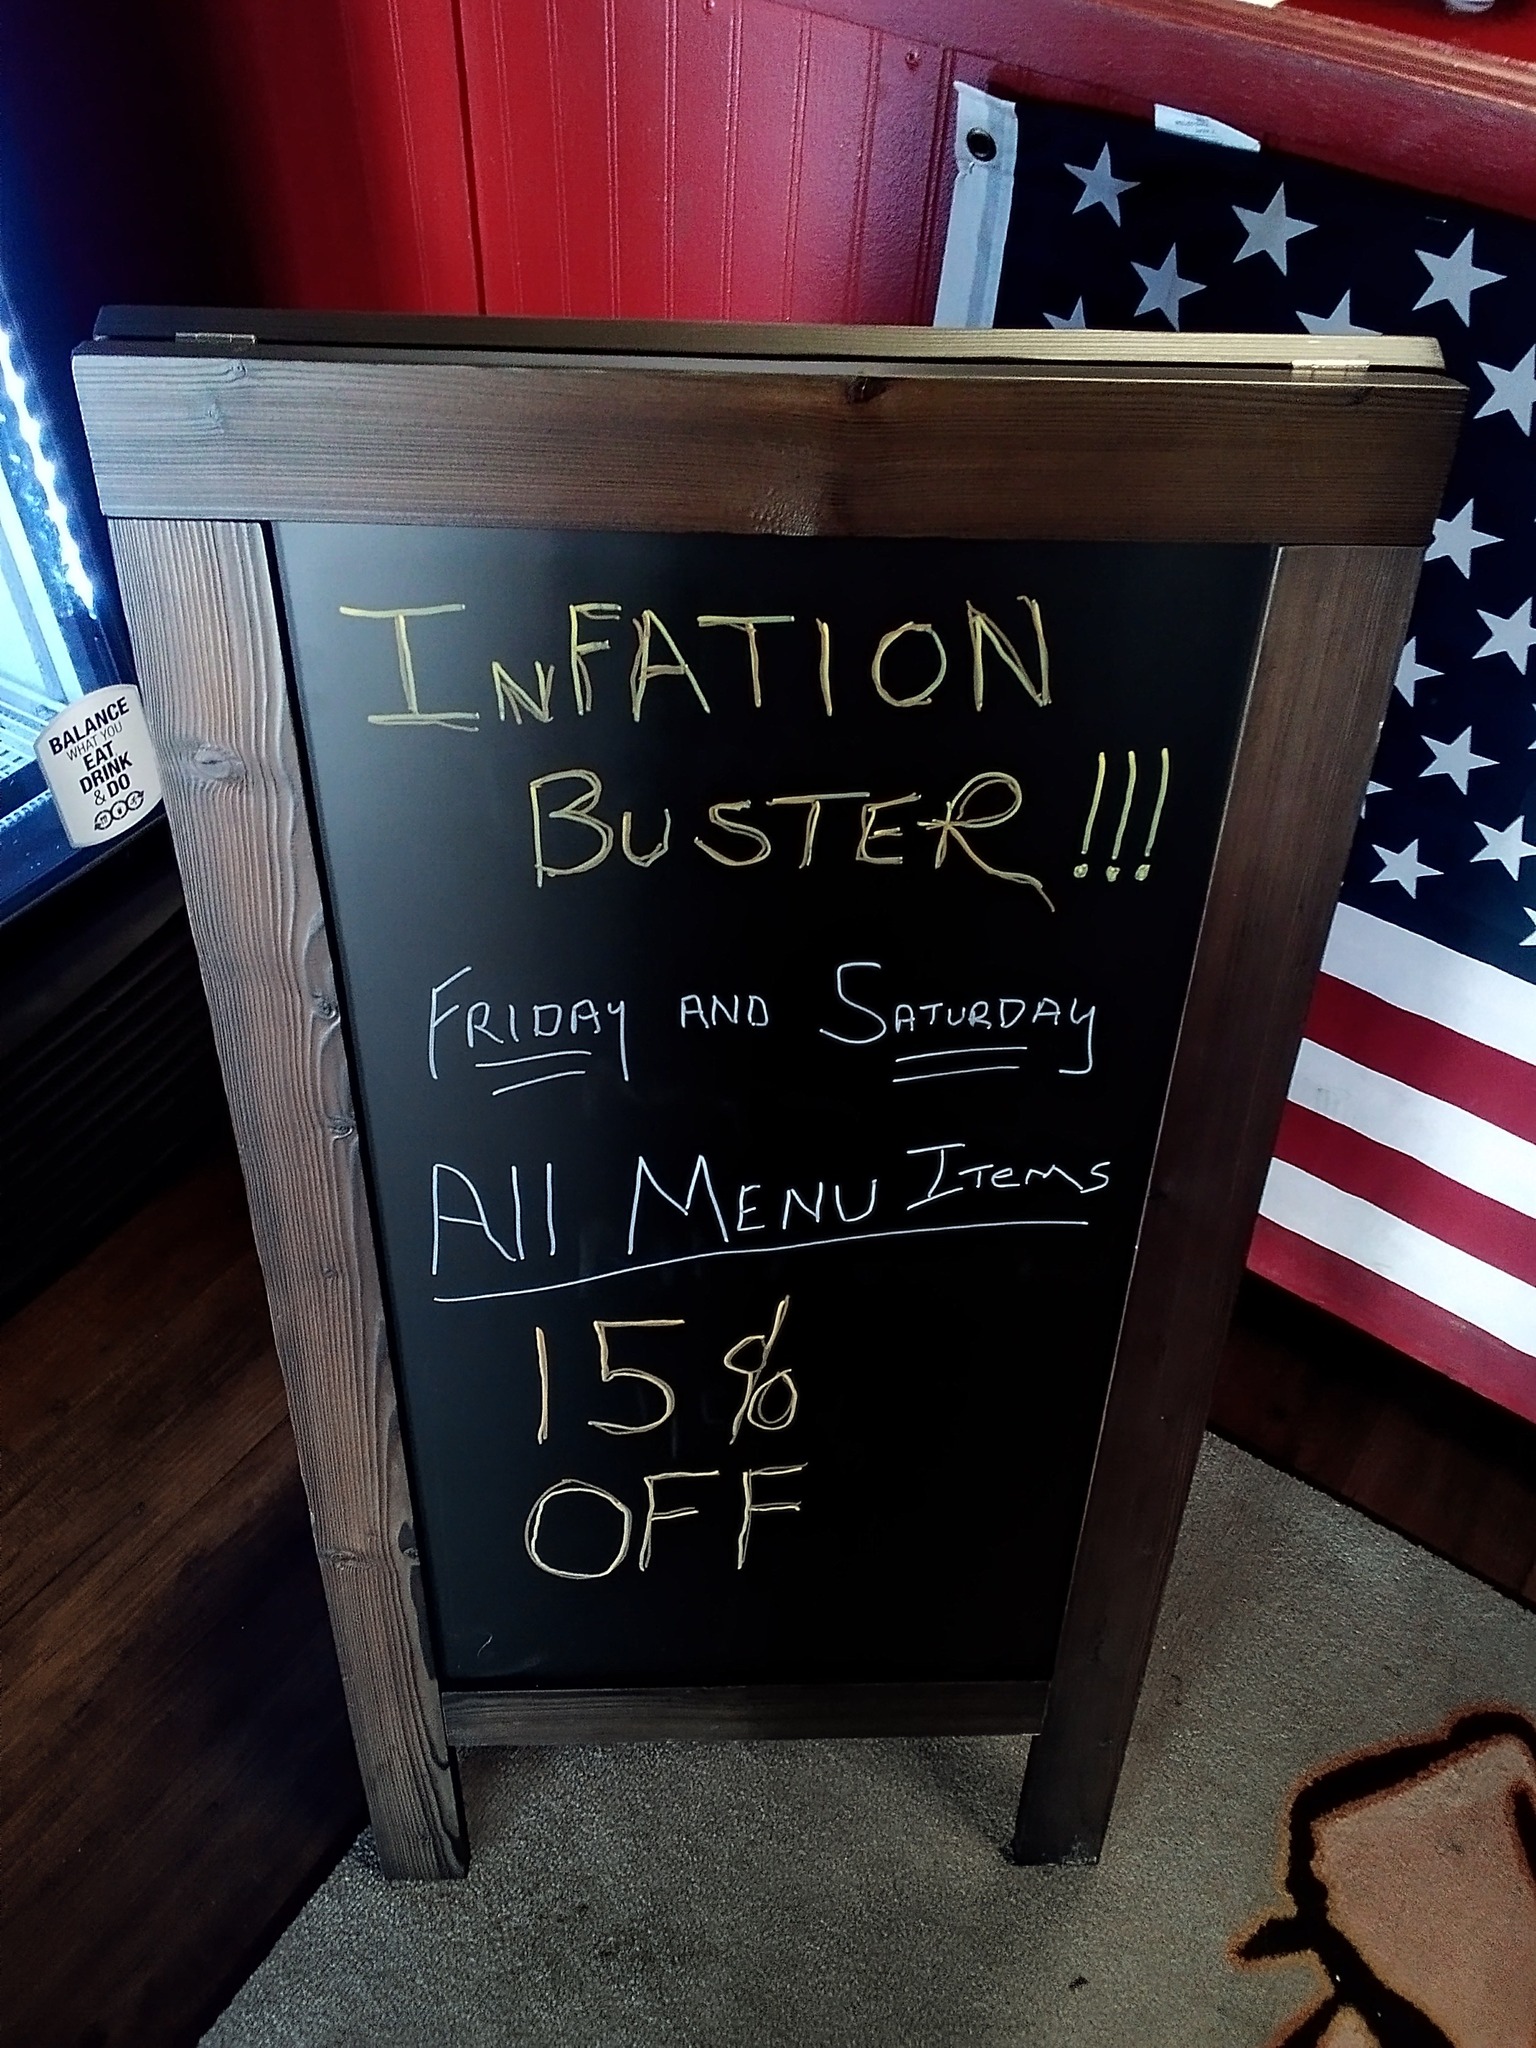 INFATION
BUSTER!!!
FRIDAY AND SATURDAY
All MENU ITems
15%
OFF
BALANCE
WHAT YOU
EAT
DRINK
& DO